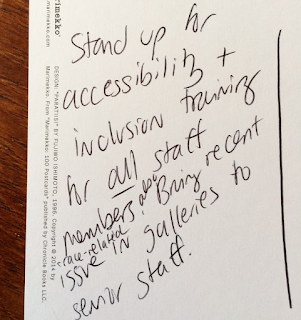 Stand up for
accessibility +
inclusion training
for all staff
members! Bring recent
race-related
ISSUE IN galleries to
senior staff.
marimekko®
marimekko.com
DESIGN: "PARATIISI" BY FUJIWO ISHIMOTO, 1996. Copyright © 2014 by
Marimekko. From "Marimekko: 100 Postcards" published by Chronicle Books LLC.